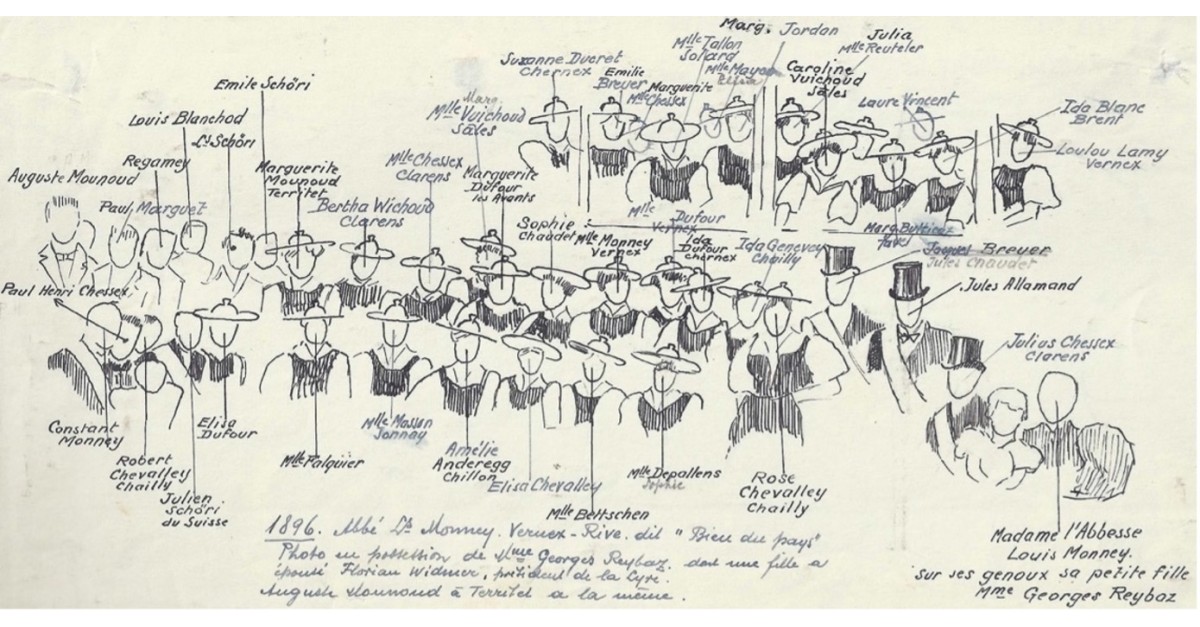 Marg. Jordan
Mlle Tallon
Sollard
Julia
Mlle Reuteler
Suzanne Ducret
Chernex
Emilie
Breuer
Mlle Chessex
Marguerite
Mlle Mayor
Caroline
Vuichoud
Sâles
Laure Vincent
Ida Blanc
Brent
Loulou Lamy
Vernex
Emile Schöri
Louis Blanchod
Ls Schöri
Regamey
Auguste Mounoud
Paul Marguet
Marguerite
Mounoud
Territet
Bertha Wichoud
Clarens
Mlle Chessex
Clarens
Marg.
Mlle Vuichoud
Sâles
Marguerite
Dufour
les Avants
Sophie
Chaudet
Mlle Monney
Vernex
Mlle Dufour
Vernex
Ida
Dufour
Chernex
Ida Genevey
Chailly
Tavel
Breuer
Jules Chaudet
Jules Allamand
Julius Chessex
Clarens
Paul Henri Chessex
Constant
Monney
Robert
Chevalley
Chailly
Julien
Schöri
du Suisse
Elisa
Dufour
Mlle Falquier
Mlle Masson
Jonnay
Amélie
Anderegg
Chillon
Elisa Chevalley
Mlle Bettschen
Mlle Depallens
Sophie
Rose
Chevalley
Chailly
Madame l'Abbesse
Louis Monney.
sur ses genoux sa petite fille
Mme Georges Reybaz
1896. Abbé Ls Monney. Vernex-Rive. dit "Bieu du pays"
Photo en possession de Mme Georges Reybaz, dont une fille a
épousé Florian Widmer, président de la Lyre.
Auguste Mounoud à Territet a la même.